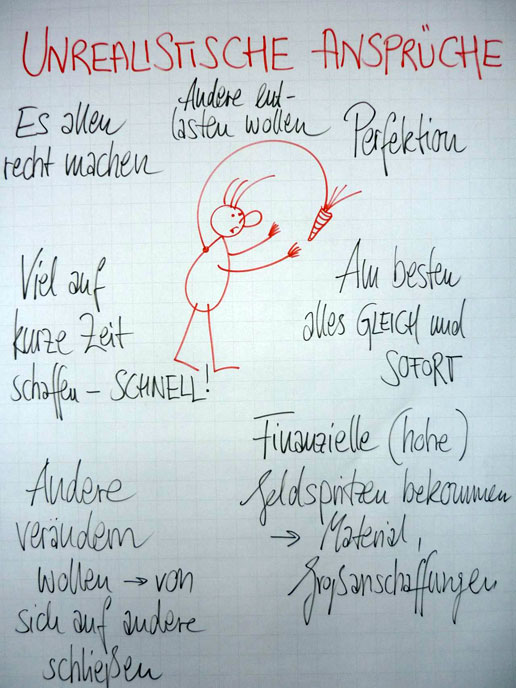 UNREALISTISCHE ANSPRÜCHE
Es allen
recht machen
Andere ent-
lasten wollen
Perfektion
Viel auf
kurze Zeit
schaffen – SCHNELL!
Am besten
alles GLEICH und
SOFORT
Andere
verändern
wollen → von
sich auf andere
schließen
Finanzielle (hohe)
Geldspritzen bekommen
→ Material,
Großanschaffungen